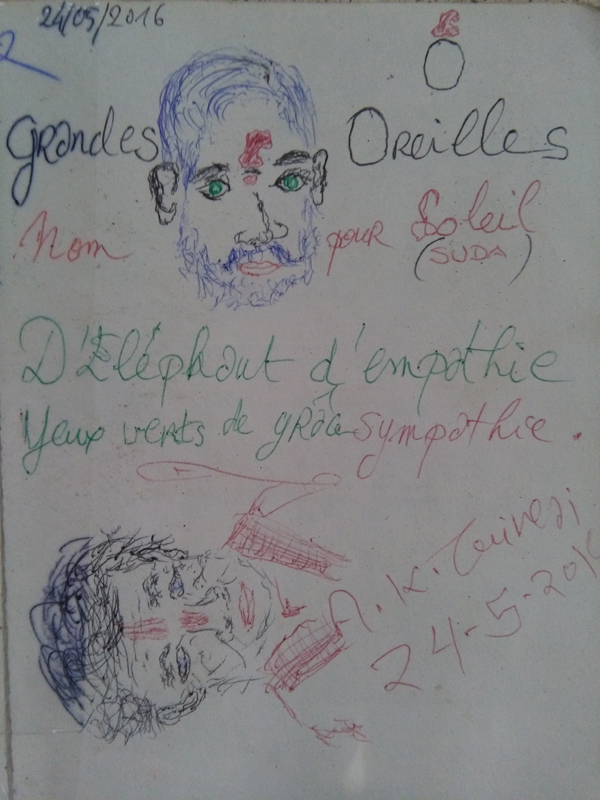 24/05/2016
Grandes Oreilles
Nom pour Soleil
(SUDA)
D'Éléphant d'empathie
Yeux verts de grâce sympathie.
24-5-2016